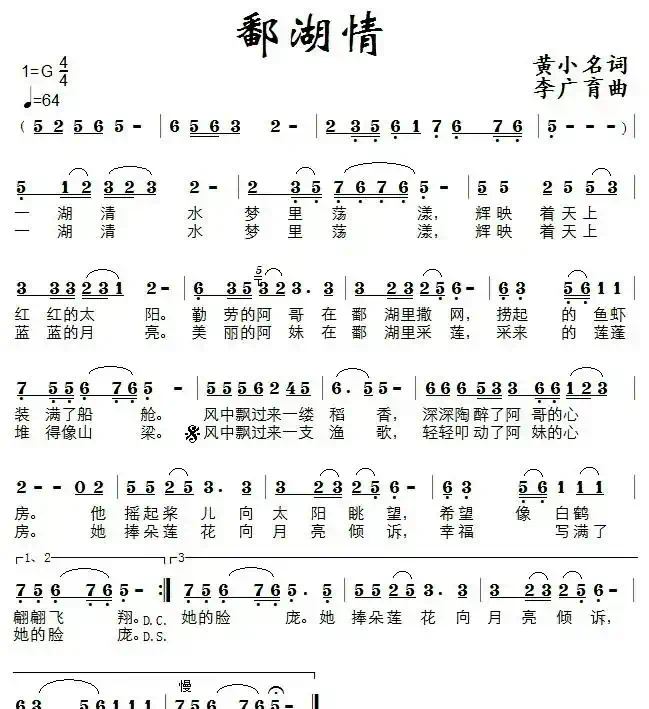 鄱湖情
1=G 4/4
♩=64
黄小名词
李广育曲
(5 2 5 6 5 - | 6 5 6 3 2 - | 2 3 5 6 1 7 6 7 6 | 5 - - - ) |
5 1 2 3 2 3 2 - | 2 3 5 7 6 7 6 5 - | 5 5 2 5 5 3 |
一湖清水梦里荡漾,辉映着天上
一湖清水梦里荡漾,辉映着天上
3 3 3 2 3 1 2 - | 6 3 5 5 3 2 3 . 3 | 3 2 3 2 5 6 - | 6 3 5 6 1 1 |
红红的太阳。勤劳的阿哥在鄱湖里撒网,捞起的鱼虾
蓝蓝的月亮。美丽的阿妹在鄱湖里采莲,采来的莲蓬
7 5 5 6 7 6 5 - | 5 5 5 6 2 4 5 | 6 . 5 5 - | 6 6 6 5 3 3 6 6 1 2 3 |
装满了船舱。风中飘过来一缕稻香,深深陶醉了阿哥的心
堆得像山梁。𝄋风中飘过来一支渔歌,轻轻叩动了阿妹的心
2 - - 0 2 | 5 5 2 5 3 . 3 | 3 2 3 2 5 6 - | 6 3 5 6 1 1 1 |
房。他摇起桨儿向太阳眺望,希望像白鹤
房。她捧朵莲花向月亮倾诉,幸福写满了
1、2 3
7 5 6 7 6 5 - :‖ 7 5 6 7 6 5 . 5 | 5 5 2 5 3 . 3 | 3 2 3 2 5 6 - |
翩翩飞翔。D.C. 她的脸庞。她捧朵莲花向月亮倾诉,
她的脸庞。D.S.
慢
6 3 5 6 1 1 1 | 7 5 6 7 6 5 - ‖